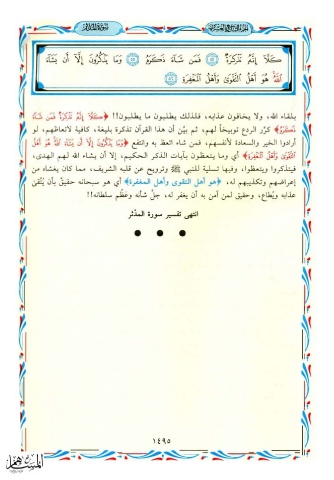 الجزء التاسع والعشرون
سورة المدثر
كَلَّا إِنَّهُ تَذْكِرَةٌ ۝٥٤ فَمَن شَاءَ ذَكَرَهُ ۝٥٥ وَمَا يَذْكُرُونَ إِلَّا أَن يَشَاءَ
اللَّهُ هُوَ أَهْلُ التَّقْوَى وَأَهْلُ الْمَغْفِرَةِ ۝٥٦
بلقاء الله، ولا يخافون عذابه، فلذلك يطلبون ما يطلبون!! ﴿كَلَّا إِنَّهُ تَذْكِرَةٌ فَمَن شَاءَ
ذَكَرَهُ﴾ كرّر الردع توبيخاً لهم، ثم بيّن أن هذا القرآن تذكرة بليغة، كافية لاتعاظهم، لو
أرادوا الخير والسعادة لأنفسهم، فمن شاء اتعظ به وانتفع ﴿وَمَا يَذْكُرُونَ إِلَّا أَن يَشَاءَ اللَّهُ هُوَ أَهْلُ
التَّقْوَى وَأَهْلُ الْمَغْفِرَةِ﴾ أي وما يتعظون بآيات الذكر الحكيم، إلا أن يشاء الله لهم الهدى،
فيتذكروا ويتعظوا، وفيها تسلية للنبي ﷺ وترويح عن قلبه الشريف، مما كان يغشاه من
إعراضهم وتكذيبهم له، ﴿هو أهل التقوى وأهل المغفرة﴾ أي هو سبحانه حقيقٌ بأن يُتّقى
عذابه ويُطاع، وحقيق لمن آمن به أن يغفر له، جلّ شأنه وعظُم سلطانه!!
انتهى تفسير سورة المدّثر
● ● ●
١٤٩٥